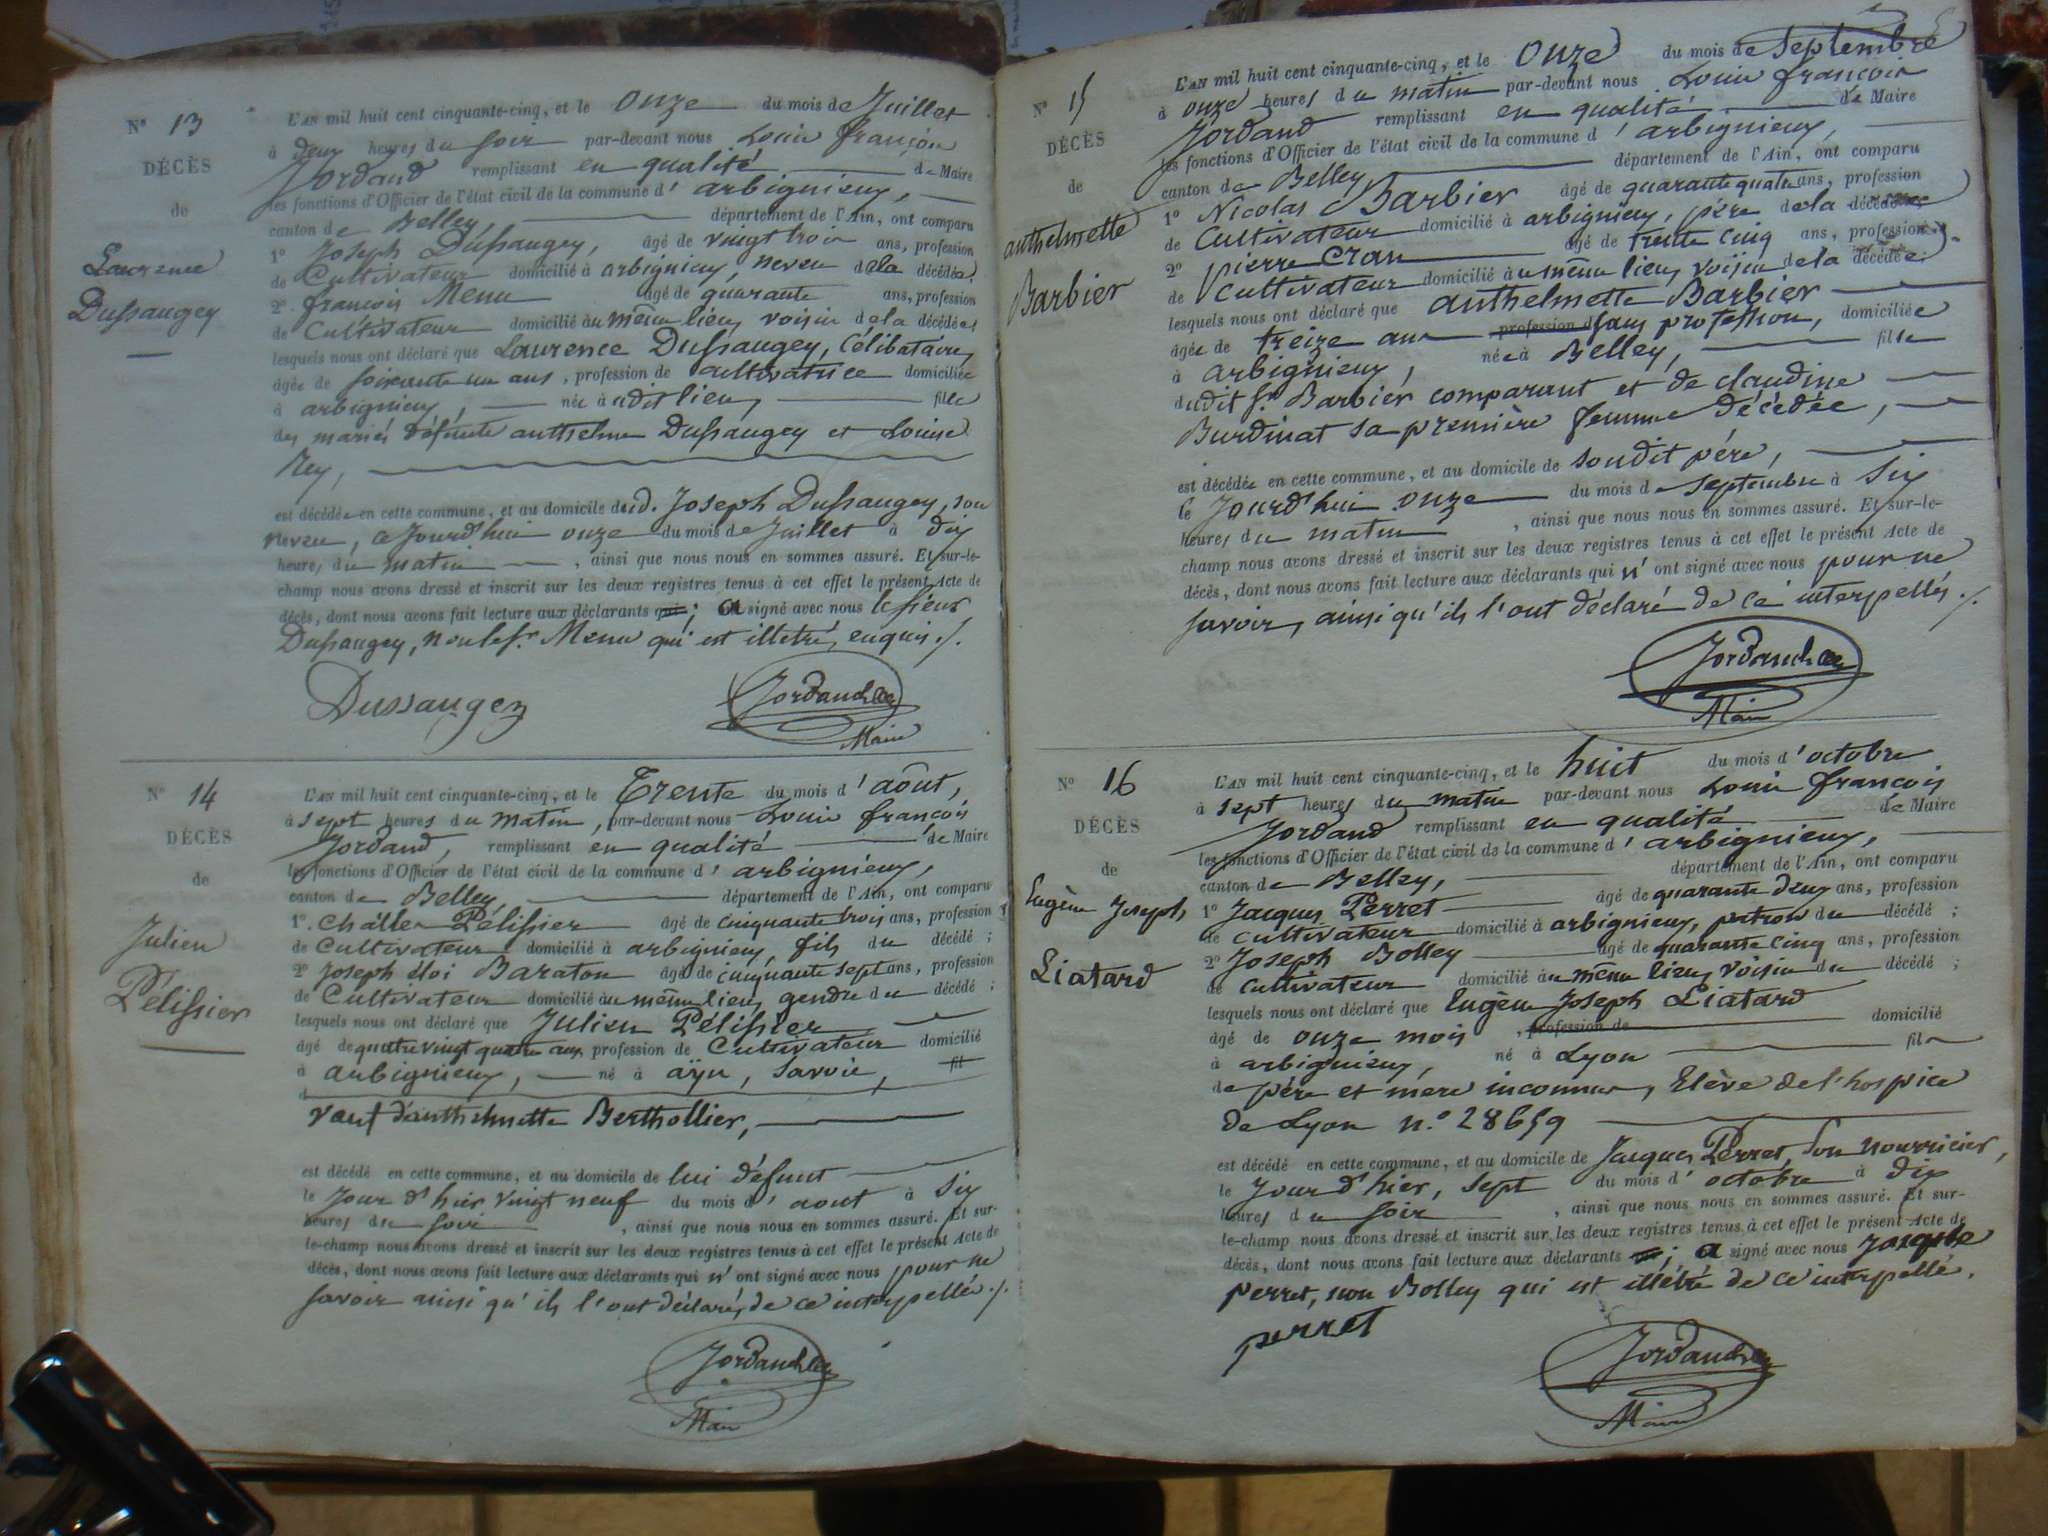 N° 13
DÉCÈS
de
Laurence
Dussaugey
L'AN mil huit cent cinquante-cinq, et le onze du mois de Juillet
à deux heures du soir par-devant nous Louis françois
Jordand remplissant en qualité de Maire
les fonctions d'Officier de l'état civil de la commune d'arbignieux,
canton de Belley, département de l'Ain, ont comparu
1° Joseph Dussaugey, âgé de vingt trois ans, profession
de Cultivateur domicilié à arbignieux, neveu de la décédée;
2° françois Menu âgé de quarante ans, profession
de Cultivateur domicilié au même lieu, voisin de la décédée;
lesquels nous ont déclaré que Laurence Dussaugey, Célibataire,
âgée de soixante un ans, profession de cultivatrice domiciliée
à arbignieux, née à udit lieu, fille
des mariés défunts anthelme Dussaugey et Louise
Rey,
est décédée en cette commune, et au domicile dud. Joseph Dussaugey, son
neveu, ce Jourd'hui onze du mois de Juillet à dix
heures du matin, ainsi que nous nous en sommes assuré. Et sur-le-
champ nous avons dressé et inscrit sur les deux registres tenus à cet effet le présent Acte de
décès, dont nous avons fait lecture aux déclarants qui; a signé avec nous le sieur
Dussaugey, non le sr. Menu qui est illetré, enquis ./.
Dussaugey
Jordand
Maire
N° 14
DÉCÈS
de
Julien
Pélissier
L'AN mil huit cent cinquante-cinq, et le Trente du mois d'août,
à sept heures du matin, par-devant nous Louis françois
Jordand, remplissant en qualité de Maire
les fonctions d'Officier de l'état civil de la commune d'arbignieux,
canton de Belley, département de l'Ain, ont comparu
1°. Pélissier âgé de cinquante trois ans, profession
de Cultivateur domicilié à arbignieux, fils du décédé;
2° Joseph éloi Baraton âgé de cinquante sept ans, profession
de Cultivateur domicilié au même lieu, gendre du décédé;
lesquels nous ont déclaré que Julien Pélissier
âgé de quatre vingt quatre ans profession de Cultivateur domicilié
à arbignieux, né à ayn, Savoie, fil
d
veuf d'anthelmette Berthollier,
est décédé en cette commune, et au domicile de lui défunt
le Jour d'hier vingt neuf du mois d'aout à six
heures du soir, ainsi que nous nous en sommes assuré. Et sur-
le-champ nous avons dressé et inscrit sur les deux registres tenus à cet effet le présent Acte de
décès, dont nous avons fait lecture aux déclarants qui n'ont signé avec nous pour ne
savoir ainsi qu'ils l'ont déclaré, de ce interpellés ./.
Jordand
Maire
N° 15
DÉCÈS
de
anthelmette
Barbier
L'AN mil huit cent cinquante-cinq, et le onze du mois de septembre
à onze heures du matin par-devant nous Louis françois
Jordand remplissant en qualité de Maire
les fonctions d'Officier de l'état civil de la commune d'arbignieux,
canton de Belley, département de l'Ain, ont comparu
1° Nicolas Barbier âgé de quarante quatre ans, profession
de Cultivateur domicilié à arbignieux, père de la décédée
2° pierre Cran âgé de trente cinq ans, profession
de Cultivateur domicilié au même lieu, voisin de la décédée;
lesquels nous ont déclaré que anthelmette Barbier
âgée de treize ans profession d sans profession, domiciliée
à arbignieux, née à Belley, fille
dudit sr. Barbier comparant et de claudine
Burdinat sa première femme décédée,
est décédée en cette commune, et au domicile de sondit père,
le Jourd'hui onze du mois de septembre à six
heures du matin, ainsi que nous nous en sommes assuré. Et sur-le-
champ nous avons dressé et inscrit sur les deux registres tenus à cet effet le présent Acte de
décès, dont nous avons fait lecture aux déclarants qui n'ont signé avec nous pour ne
savoir, ainsi qu'ils l'ont déclaré de ce interpellés ./.
Jordand
Maire
N° 16
DÉCÈS
de
Eugène Joseph
Liatard
L'AN mil huit cent cinquante-cinq, et le huit du mois d'octobre
à sept heures du matin par-devant nous Louis françois
Jordand remplissant en qualité de Maire
les fonctions d'Officier de l'état civil de la commune d'arbignieux,
canton de Belley, département de l'Ain, ont comparu
1° Jacques Perret âgé de quarante deux ans, profession
de cultivateur domicilié à arbignieux, patron du décédé;
2° Joseph Bolley âgé de quarante cinq ans, profession
de cultivateur domicilié au même lieu, voisin du décédé;
lesquels nous ont déclaré que Eugène Joseph Liatard
âgé de onze mois, profession de domicilié
à arbignieux, né à Lyon fils
de père et mere inconnus, Elève de l'hospice
de Lyon n.° 28659
est décédé en cette commune, et au domicile de Jacques Perret, son nourricier,
le Jour d'hier, sept du mois d'octobre à dix
heures du soir, ainsi que nous nous en sommes assuré. Et sur-
le-champ nous avons dressé et inscrit sur les deux registres tenus à cet effet le présent Acte de
décès, dont nous avons fait lecture aux déclarants qui; a signé avec nous Jacques
perret, non Bolley qui est illétré de ce interpellé.
perret
Jordand
Maire